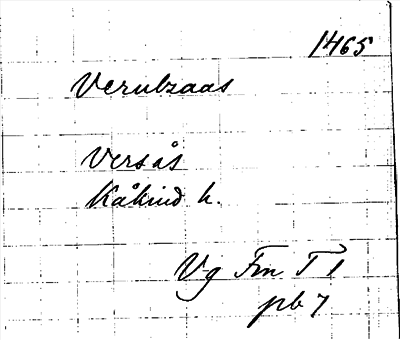 1465
Verulzaas
Versås
Kåkind h.
Vg Fm T 1
pb 7